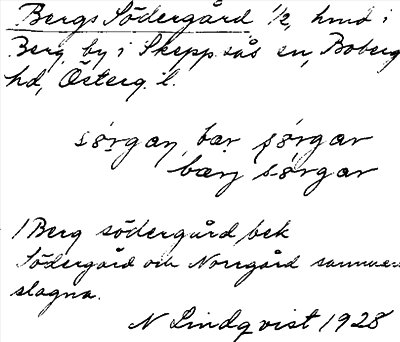 Bergs Södergård 1/2, hmd i
Berg, by i Skeppsås sn, Boberg
hd, Österg. l.
sørgaɳ, bær sørgar
bærj sørgar
/Berg södergård/ bek
Södergård och Norrgård samman
slagna.
N Lindqvist 1928